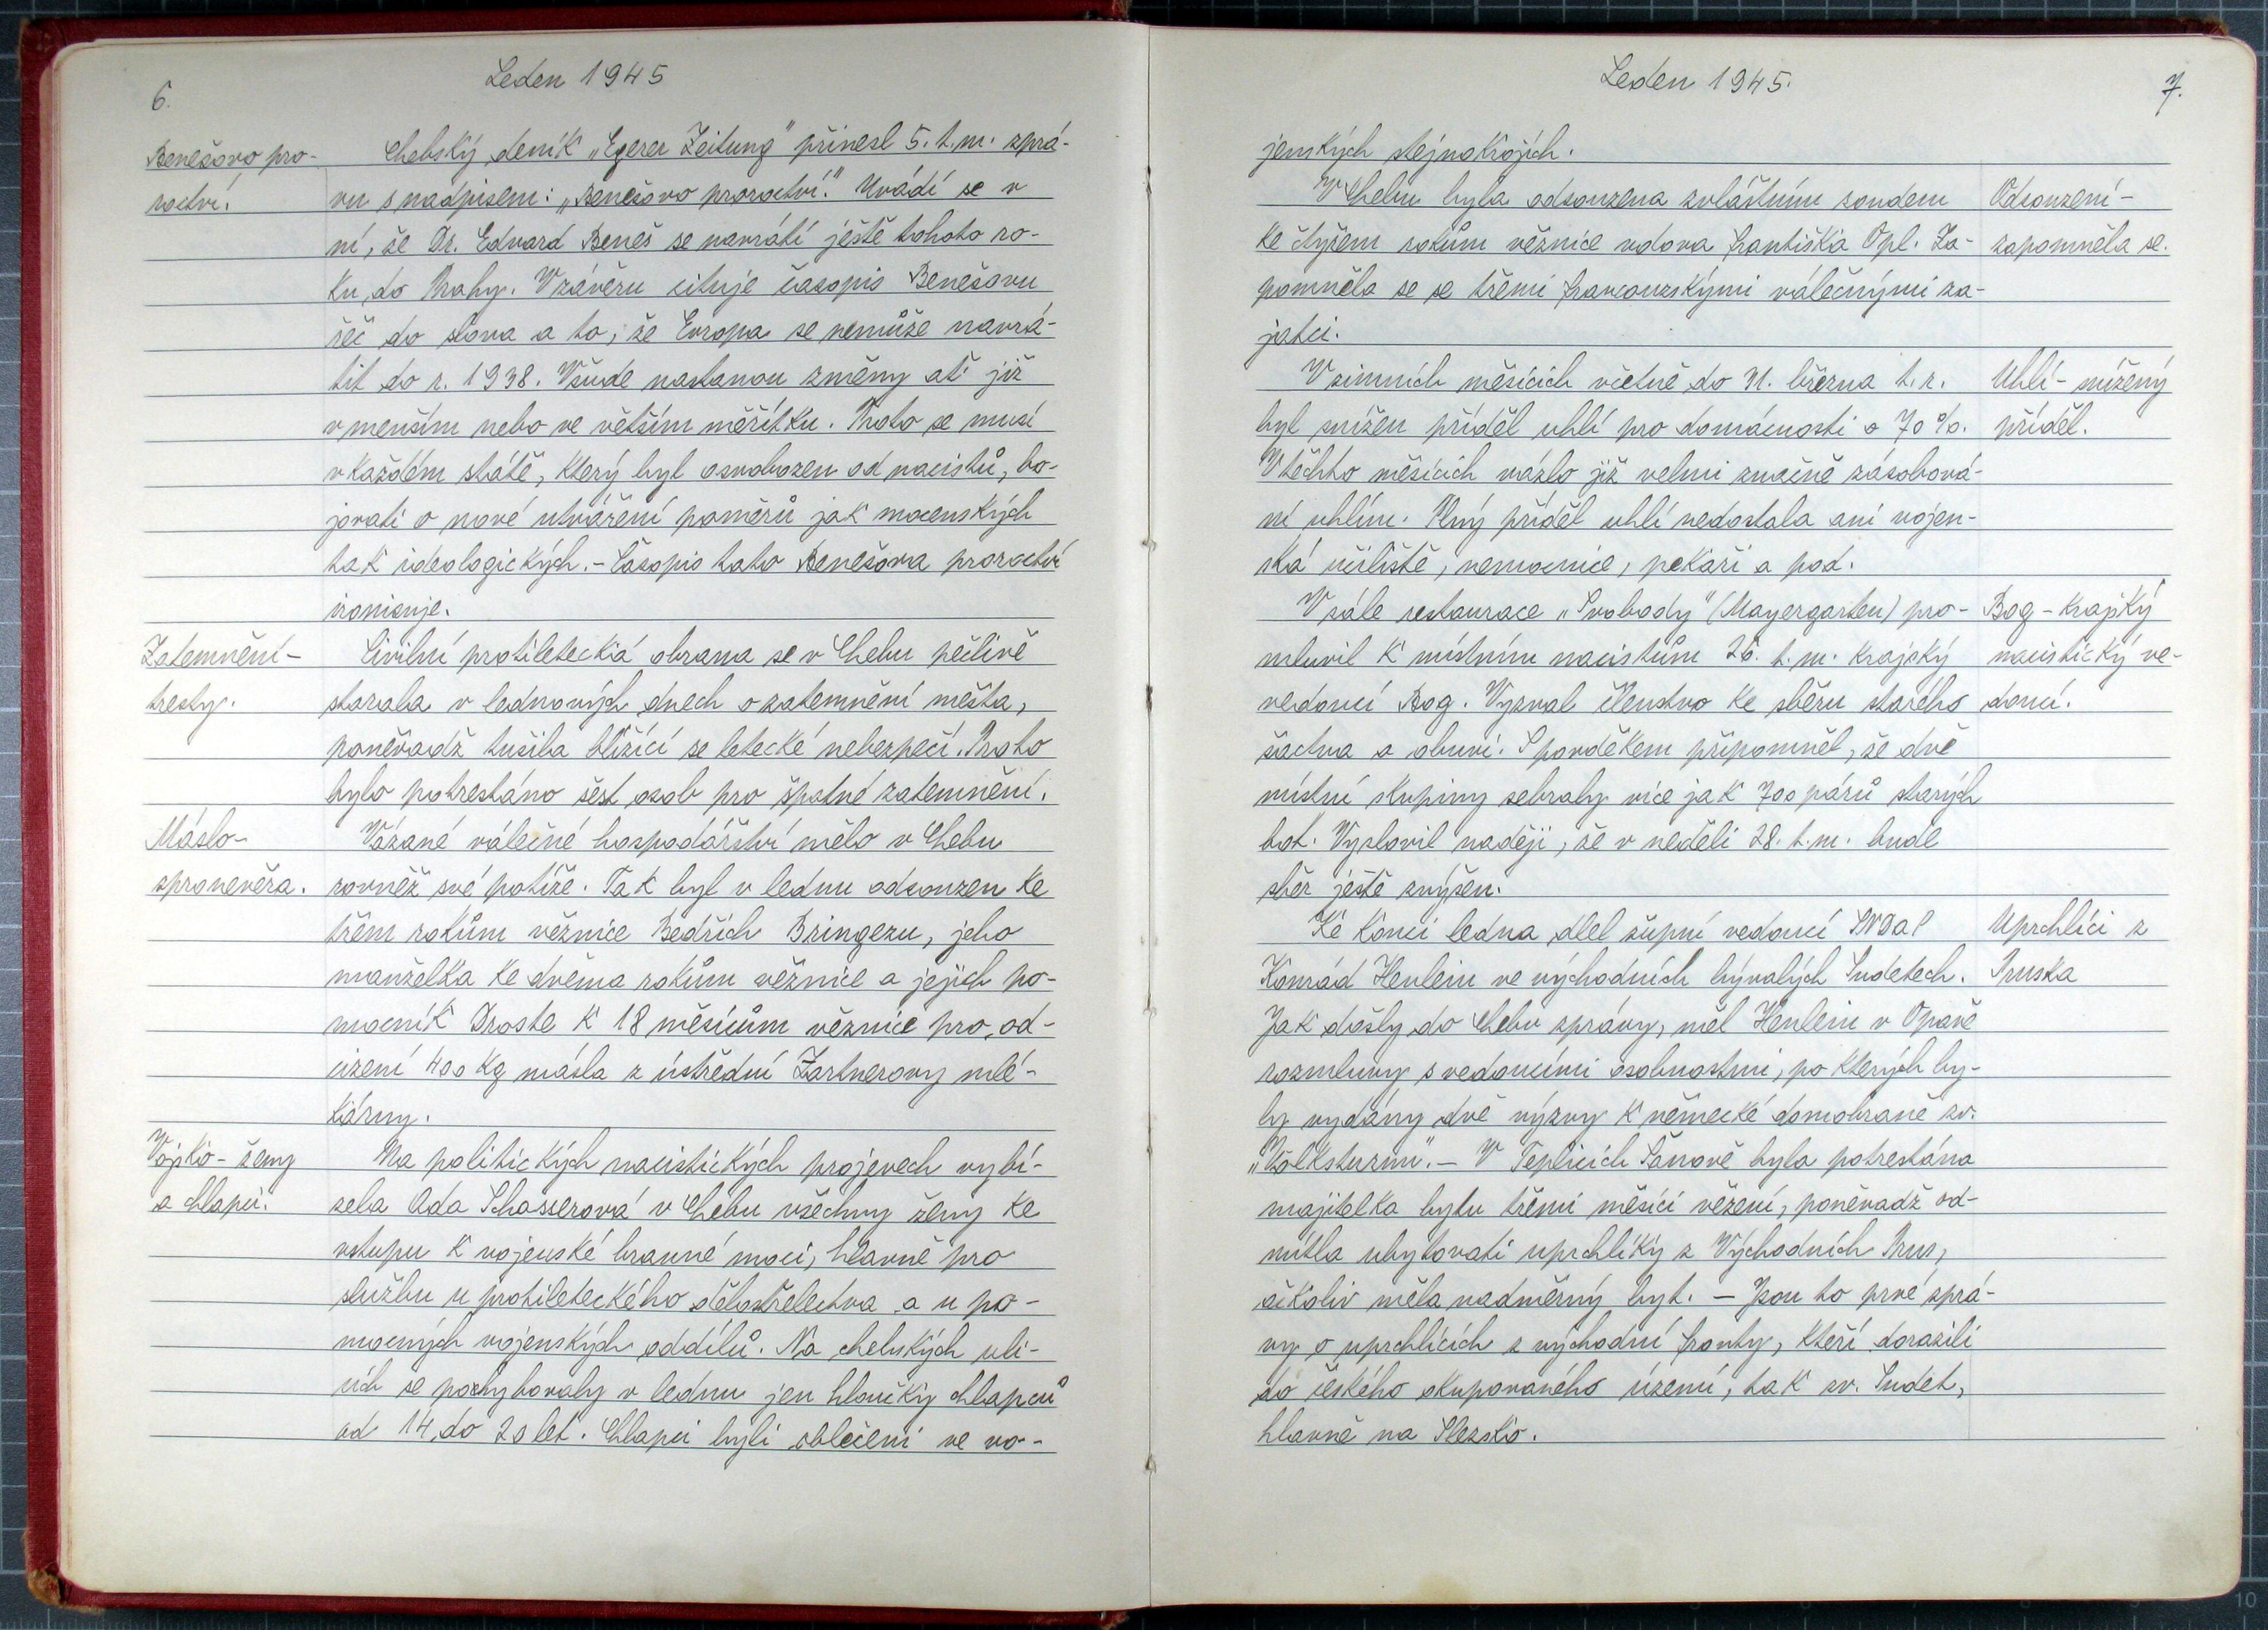 6.
Leden 1945
Benešovo pro-
roctví.
Chebský deník „Egerer Zeitung" přinesl 5. t.m. zprá-
vu s nadpisem: „Benešovo proroctví." Uvádí se v
ní, že Dr. Edvard Beneš se navrátí ještě tohoto ro-
ku do Prahy. V závěru cituje časopis Benešovu
řeč do slova a to, že Evropa se nemůže navrá-
tit do r. 1938. Všude nastanou změny ať již
v menším nebo ve větším měřítku. Proto se musí
v každém státě, který byl osvobozen od nacistů, bo-
jovati o nové utváření poměrů jak mocenských
tak ideologických. - Časopis tato Benešova proroctví
ironisuje.
Zatemnění-
tresty.
Civilní protiletecká obrana se v Chebu pečlivě
starala v lednových dnech o zatemnění města,
poněvadž tušila blížící se letecké nebezpečí. Proto
bylo potrestáno šest osob pro špatné zatemnění.
Máslo-
zpronevěra.
Vázané válečné hospodářství mělo v Chebu
rovněž své potíže. Tak byl v lednu odsouzen ke
třem rokům věznice Bedřich Bringezu, jeho
manželka ke dvěma rokům věznice a jejich po-
mocník Droste k 18 měsícům věznice pro od-
cizení 400 kg másla z ústřední Zartnerovy mlé-
kárny.
Vojsko - ženy
a chlapci.
Na politických nacistických projevech vybí-
zela Ada Schasserová v Chebu všechny ženy ke
vstupu k vojenské branné moci, hlavně pro
službu u protileteckého dělostřelectva a u po-
mocných vojenských oddílů. Na chebských uli-
cích se pohybovaly v lednu jen hloučky chlapců
od 14 do 20 let. Chlapci byli oblečeni ve vo-
Leden 1945.
7.
jenských stejnokrojích.
V Chebu byla odsouzena zvláštním soudem
ke čtyřem rokům věznice vdova Františka Opl. Za-
pomněla se se třemi francouzskými válečnými za-
jatci.
Odsouzení-
zapomněla se.
V zimních měsících včetně do 31. března t.r.
byl snížen příděl uhlí pro domácnosti o 70%.
V těchto měsících vázlo již velmi značně zásobová-
ní uhlím. Plný příděl uhlí nedostala ani vojen-
ská učiliště, nemocnice, pekaři a pod.
Uhlí - snížený
příděl.
V sále restaurace „Svobody" (Mayergarten) pro-
mluvil k místním nacistům 26. t.m. krajský
vedoucí Bog. Vyzval členstvo ke sběru starého
šactva a obuvi. S povděkem připomněl, že dvě
místní skupiny sebraly více jak 700 párů starých
bot. Vyslovil naději, že v neděli 28. t.m. bude
sběr ještě zvýšen.
Bog - krajský
nacistický ve-
doucí.
Ke konci ledna dlel župní vedoucí SNDaP
Konrád Henlein ve východních bývalých Sudetech.
Jak došly do Chebu zprávy, měl Henlein v Opavě
rozmluvy s vedoucími osobnostmi, po kterých by-
ly vydány dvě výzvy k německé domobraně zv.
„Volksturm". - V Teplicích Šanově byla potrestána
majitelka bytu třemi měsíci vězení, poněvadž od-
mítla ubytovati uprchlíky z Východních Prus,
ačkoliv měla nadměrný byt. - Jsou to prvé zprá-
vy o uprchlících z východní fronty, kteří dorazili
do českého okupovaného území, tak zv. Sudet,
hlavně na Slezsko.
Uprchlíci z
Pruska
10